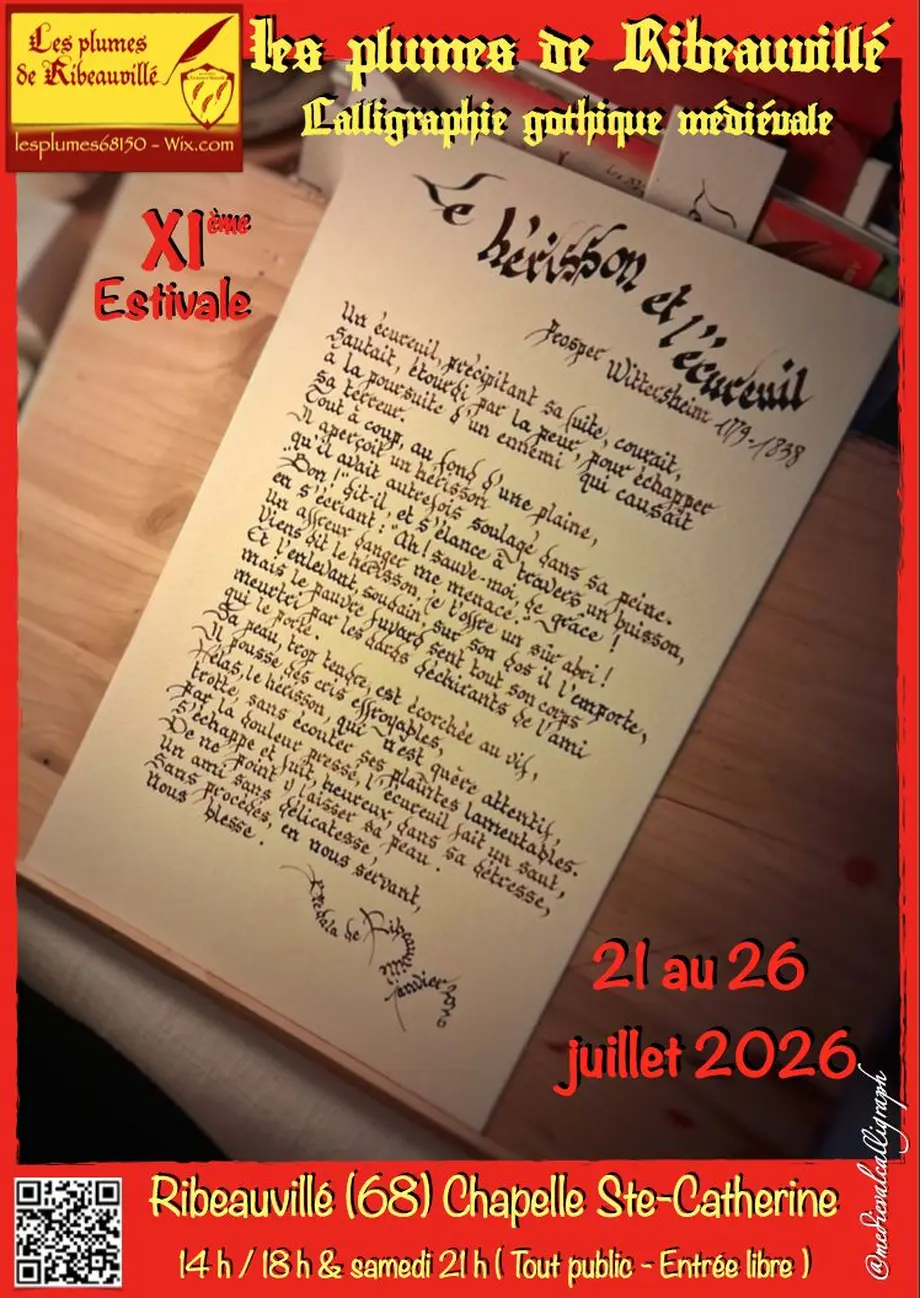 Les plumes
de Ribeauvillé
lesplumes68150 - Wix.com
les plumes de Ribeauvillé
Calligraphie gothique médiévale
XIème
Estivale
Le hérisson et l'écureuil
Prosper Wittersheim 179-1838
Un écureuil, précipitant sa fuite, courait,
Sautait, étourdi par la peur, pour échapper
à la poursuite d'un ennemi qui causait
sa terreur.
Tout à coup, au fond d'une plaine,
Il aperçoit un hérisson
qu'il avait autrefois soulagé dans sa peine.
"Bon !" dit-il, et s'élance à travers un buisson,
en s'écriant : "Ah ! sauve-moi, de grâce !
Un affreux danger me menace."
Viens dit le hérisson, je t'offre un sûr abri !
Et l'enlevant, soudain, sur son dos il l'emporte,
mais le pauvre fuyard sent tout son corps
meurtri par les dards déchirants de l'ami
qui le porte.
Sa peau, trop tendre, est écorchée au vif,
Il pousse des cris effroyables,
Hélas, le hérisson, qui n'est guère attentif,
trotte, sans écouter ses plaintes lamentables.
Par la douleur pressé, l'écureuil fait un saut,
S'échappe et fuit, heureux, dans sa détresse,
De ne point y laisser sa peau.
Un ami sans délicatesse,
Sans procédés, en nous servant,
Nous blesse.
de Ribeauvillé
janvier
21 au 26
juillet 2026
@medievalcalligraph
Ribeauvillé (68) Chapelle Ste-Catherine
14 h / 18 h & samedi 21 h ( Tout public - Entrée libre )